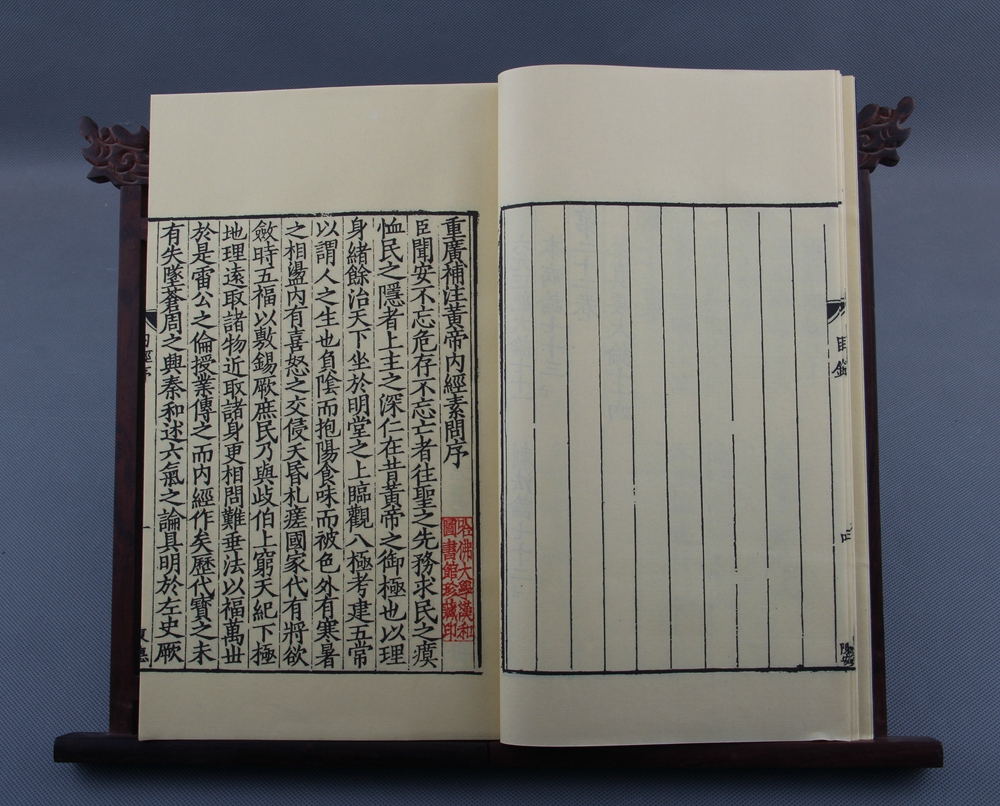 目錄
四
重廣補注黃帝内經素問序
臣聞安不忘危存不忘亡者往聖之先務求民之瘼
恤民之隱者上主之深仁在昔黃帝之御極也以理
身緒餘治天下坐於明堂之上臨觀八極考建五常
以謂人之生也負陰而抱陽食味而被色外有寒暑
之相盪内有喜怒之交侵夭昏札瘥國家代有將欲
斂時五福以敷錫厥庶民乃與歧伯上窮天紀下極
地理遠取諸物近取諸身更相問難垂法以福萬世
於是雷公之倫授業傳之而内經作矣歷代寶之未
有失墜蒼周之興秦和述六氣之論具明於左史厥
哈佛大學漢和
圖書館珍藏印
内經序
一